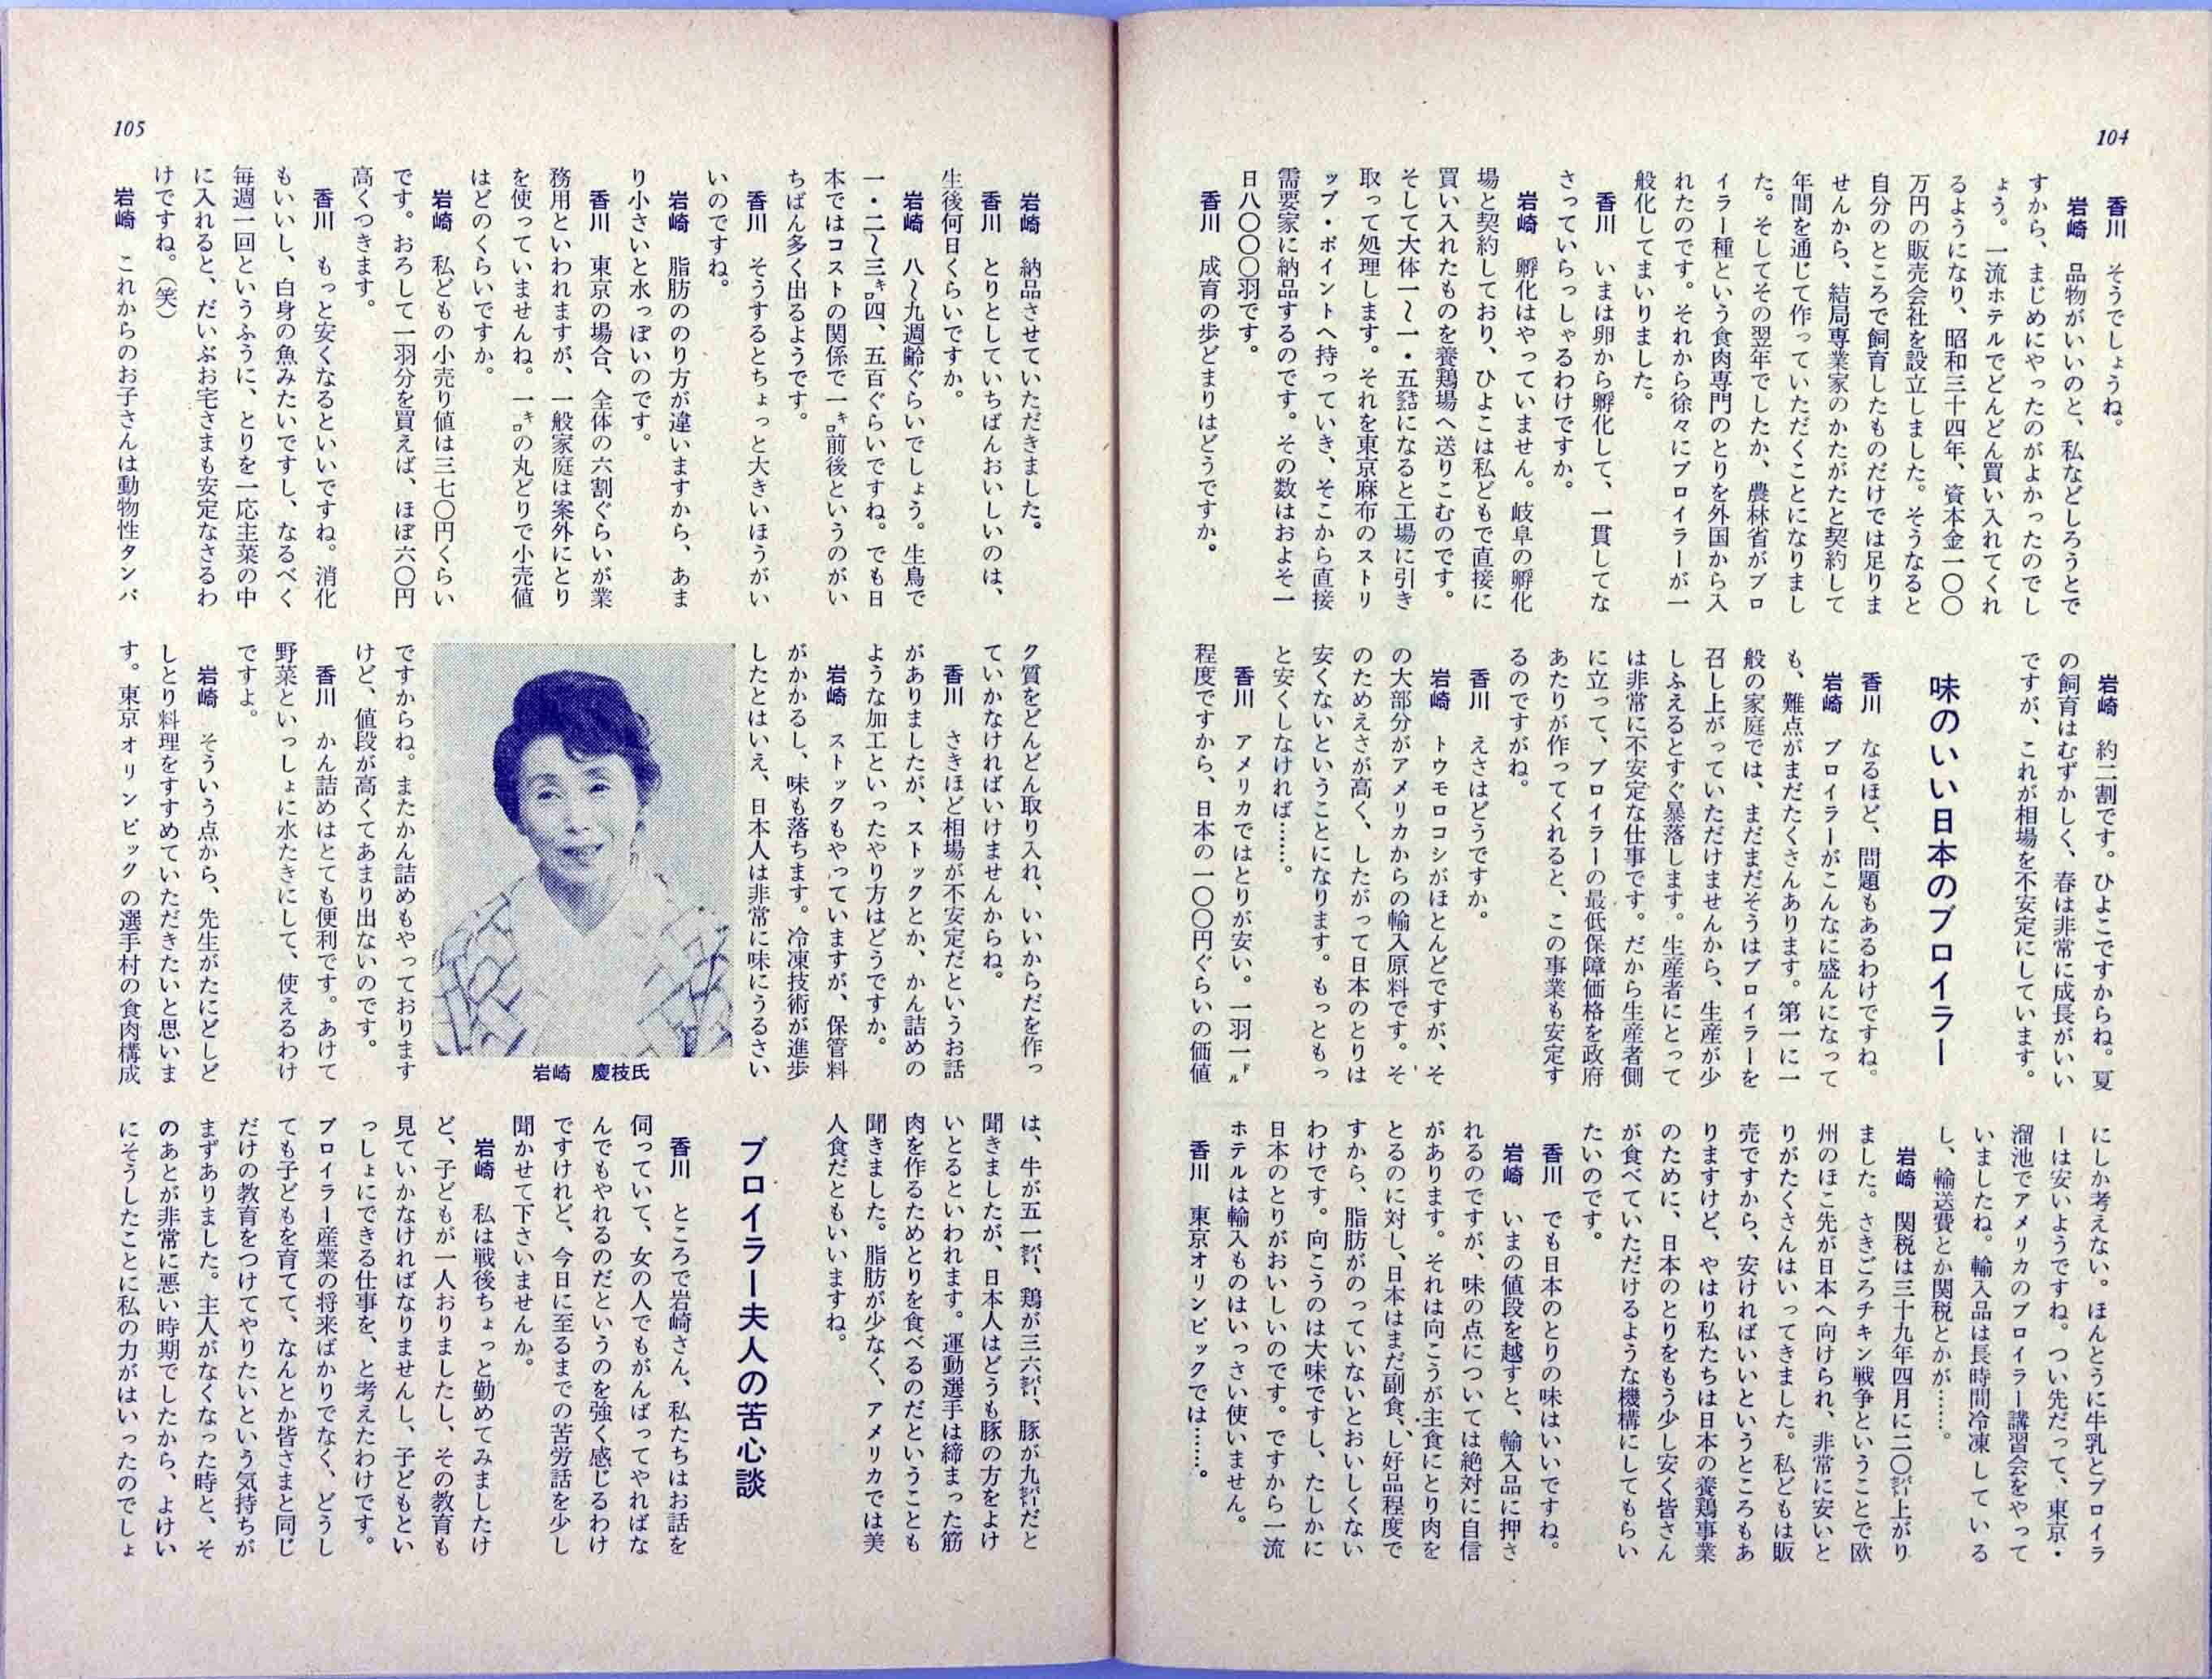 104
香川　そうでしょうね。
岩崎　品物がいいのと、私などしろうとで
すから、まじめにやったのがよかったのでし
ょう。一流ホテルでどんどん買い入れてくれ
るようになり、昭和三十四年、資本金一〇〇
万円の販売会社を設立しました。そうなると
自分のところで飼育したものだけでは足りま
せんから、結局専業家のかたがたと契約して
年間を通じて作っていただくことになりまし
た。そしてその翌年でしたか、農林省がブロ
イラー種という食肉専門のとりを外国から入
れたのです。それから徐々にブロイラーが一
般化してまいりました。
香川　いまは卵から孵化して、一貫してな
さっていらっしゃるわけですか。
岩崎　孵化はやっていません。岐阜の孵化
場と契約しており、ひよこは私どもで直接に
買い入れたものを養鶏場へ送りこむのです。
そして大体一〜一・五㌔になると工場に引き
取って処理します。それを東京麻布のストリ
ップ・ポイントへ持っていき、そこから直接
需要家に納品するのです。その数はおよそ一
日八〇〇〇羽です。
香川　成育の歩どまりはどうですか。
岩崎　約二割です。ひよこですからね。夏
の飼育はむずかしく、春は非常に成長がいい
ですが、これが相場を不安定にしています。
味のいい日本のブロイラー
香川　なるほど、問題もあるわけですね。
岩崎　ブロイラーがこんなに盛んになって
も、難点がまだたくさんあります。第一に一
般の家庭では、まだまだそうはブロイラーを
召し上がっていただけませんから、生産が少
しふえるとすぐ暴落します。生産者にとって
は非常に不安定な仕事です。だから生産者側
に立って、ブロイラーの最低保障価格を政府
あたりが作ってくれると、この事業も安定す
るのですがね。
香川　えさはどうですか。
岩崎　トウモロコシがほとんどですが、そ
の大部分がアメリカからの輸入原料です。そ
のためえさが高く、したがって日本のとりは
安くないということになります。もっともっ
と安くしなければ……。
香川　アメリカではとりが安い。一羽一㌦
程度ですから、日本の一〇〇円ぐらいの価値
にしか考えない。ほんとうに牛乳とブロイラ
ーは安いようですね。つい先だって、東京・
溜池でアメリカのブロイラー講習会をやって
いましたね。輸入品は長時間冷凍している
し、輸送費とか関税とかが……。
岩崎　関税は三十九年四月に二〇㌫上がり
ました。さきごろチキン戦争ということで欧
州のほこ先が日本へ向けられ、非常に安いと
りがたくさんはいってきました。私どもは販
売ですから、安ければいいというところもあ
りますけど、やはり私たちは日本の養鶏事業
のために、日本のとりをもう少し安く皆さん
が食べていただけるような機構にしてもらい
たいのです。
香川　でも日本のとりの味はいいですね。
岩崎　いまの値段を越すと、輸入品に押さ
れるのですが、味の点については絶対に自信
があります。それは向こうが主食にとり肉を
とるのに対し、日本はまだ副食、し好品程度で
すから、脂肪がのっていないとおいしくない
わけです。向こうのは大味ですし、たしかに
日本のとりがおいしいのです。ですから一流
ホテルは輸入ものはいっさい使いません。
香川　東京オリンピックでは……。
105
岩崎　納品させていただきました。
香川　とりとしていちばんおいしいのは、
生後何日くらいですか。
岩崎　八〜九週齢ぐらいでしょう。生鳥で
一・二〜三㌔四、五百ぐらいですね。でも日
本ではコストの関係で一㌔前後というのがい
ちばん多く出るようです。
香川　そうするとちょっと大きいほうがい
いのですね。
岩崎　脂肪ののり方が違いますから、あま
り小さいと水っぽいのです。
香川　東京の場合、全体の六割ぐらいが業
務用といわれますが、一般家庭は案外にとり
を使っていませんね。一㌔の丸どりで小売値
はどのくらいですか。
岩崎　私どもの小売り値は三七〇円くらい
です。おろして一羽分を買えば、ほぼ六〇円
高くつきます。
香川　もっと安くなるといいですね。消化
もいいし、白身の魚みたいですし、なるべく
毎週一回というふうに、とりを一応主菜の中
に入れると、だいぶお宅さまも安定なさるわ
けですね。（笑）
岩崎　これからのお子さんは動物性タンパ
ク質をどんどん取り入れ、いいからだを作っ
ていかなければいけませんからね。
香川　さきほど相場が不安定だというお話
がありましたが、ストックとか、かん詰めの
ような加工といったやり方はどうですか。
岩崎　ストックもやっていますが、保管料
がかかるし、味も落ちます。冷凍技術が進歩
したとはいえ、日本人は非常に味にうるさい
岩崎　慶枝氏
ですからね。またかん詰めもやっております
けど、値段が高くてあまり出ないのです。
香川　かん詰めはとても便利です。あけて
野菜といっしょに水たきにして、使えるわけ
ですよ。
岩崎　そういう点から、先生がたにどしど
しとり料理をすすめていただきたいと思いま
す。東京オリンピックの選手村の食肉構成
は、牛が五一㌫、鶏が三六㌫、豚が九㌫だと
聞きましたが、日本人はどうも豚の方をよけ
いとるといわれます。運動選手は締まった筋
肉を作るためとりを食べるのだということも
聞きました。脂肪が少なく、アメリカでは美
人食だともいいますね。
ブロイラー夫人の苦心談
香川　ところで岩崎さん、私たちはお話を
伺っていて、女の人でもがんばってやればな
んでもやれるのだというのを強く感じるわけ
ですけれど、今日に至るまでの苦労話を少し
聞かせて下さいませんか。
岩崎　私は戦後ちょっと勤めてみましたけ
ど、子どもが一人おりましたし、その教育も
見ていかなければなりませんし、子どもとい
っしょにできる仕事を、と考えたわけです。
ブロイラー産業の将来ばかりでなく、どうし
ても子どもを育てて、なんとか皆さまと同じ
だけの教育をつけてやりたいという気持ちが
まずありました。主人がなくなった時と、そ
のあとが非常に悪い時期でしたから、よけい
にそうしたことに私の力がはいったのでしょ